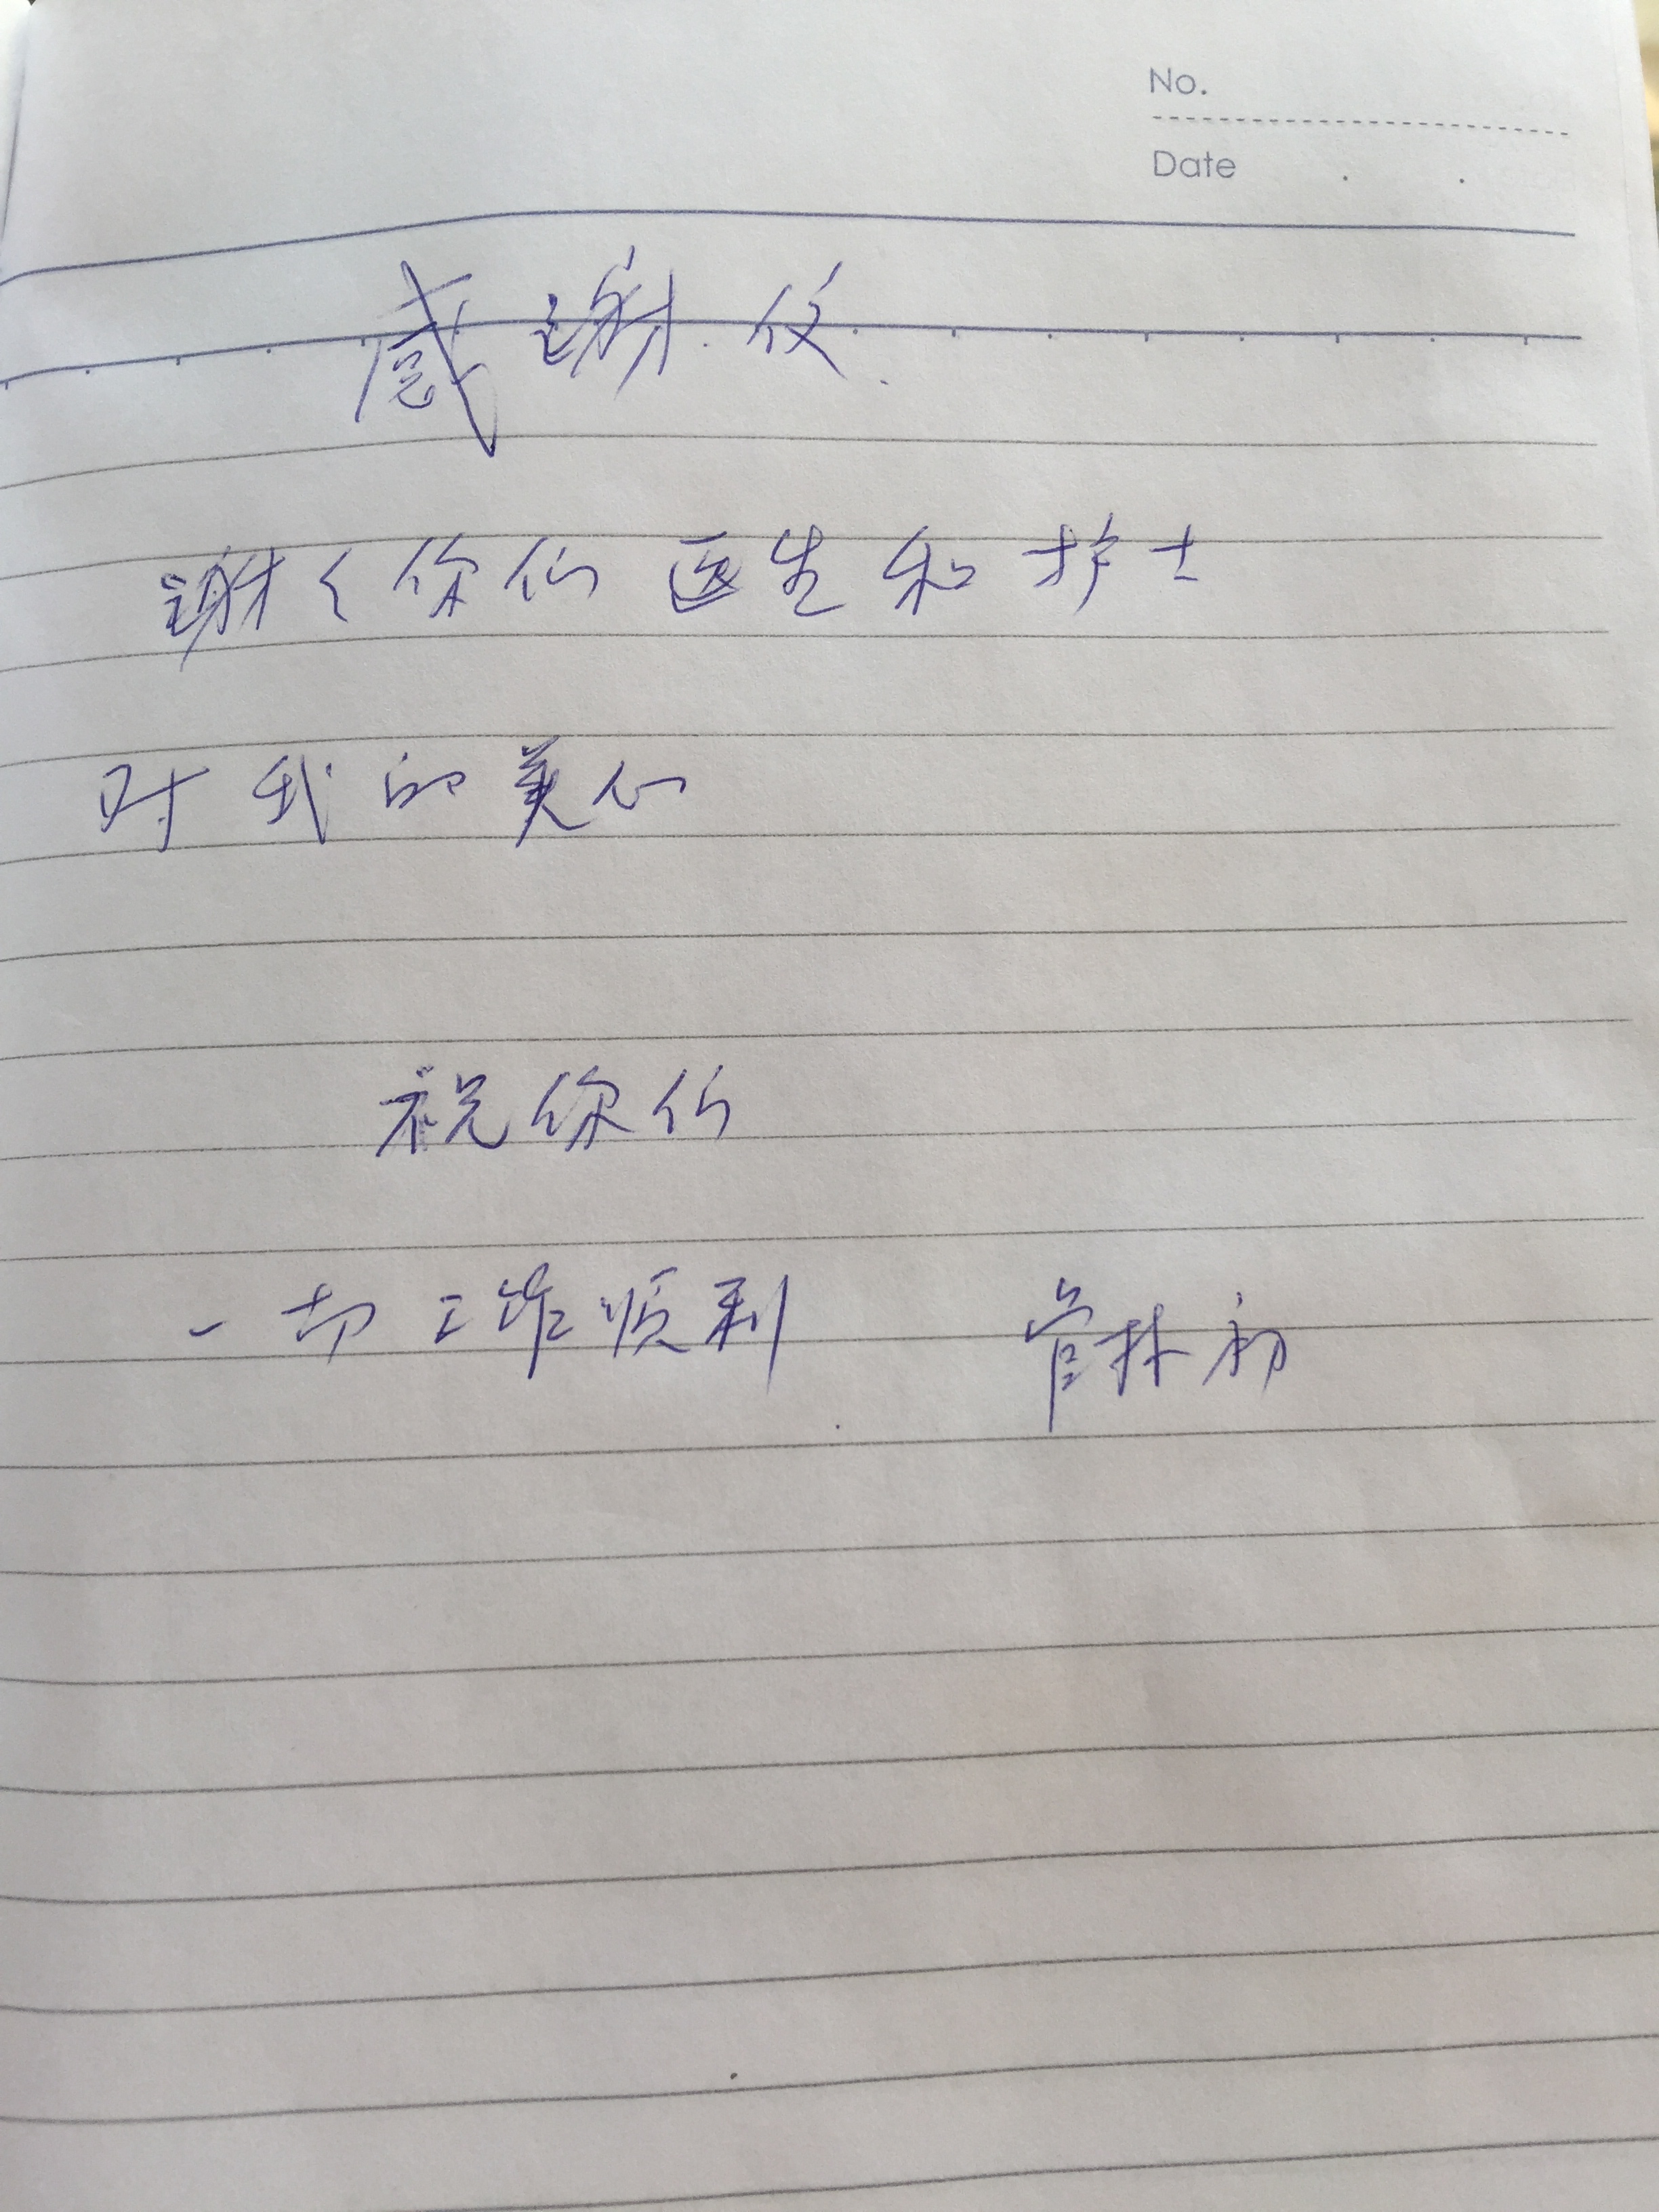 No.
Date
感谢仪
谢〻你们医生和护士
对我的关心
祝你们
一切工作顺利 管林初